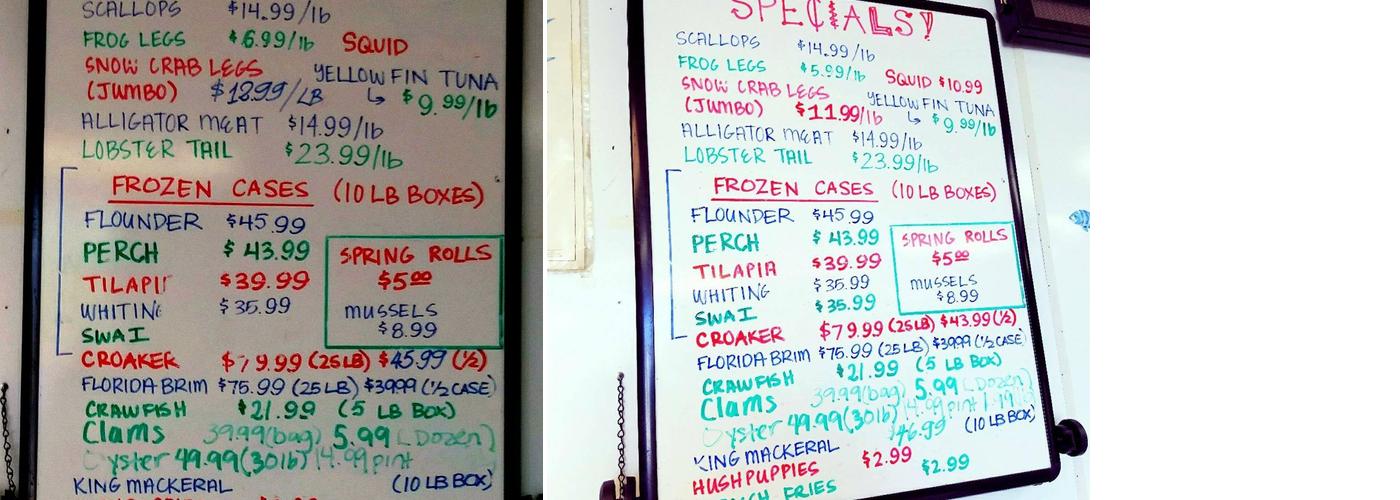 SCALLOPS $14.99/lb
FROG LEGS $6.99/lb SQUID
SNOW CRAB LEGS YELLOW FIN TUNA
(JUMBO) $12.99/LB $9.99/lb
ALLIGATOR MEAT $14.99/lb
LOBSTER TAIL $23.99/lb
FROZEN CASES (10 LB BOXES)
FLOUNDER $45.99
PERCH $43.99 SPRING ROLLS
TILAPI $39.99 $5.00
WHITING $35.99 MUSSELS
SWAI $8.99
CROAKER $79.99 (25LB) $45.99 (1/2)
FLORIDA BRIM $75.99 (25 LB) $39.99 (1/2 CASE)
CRAWFISH $21.99 (5 LB BOX)
Clams 39.99(bag) 5.99 (Dozen)
Oyster 49.99(30lb) 14.99 pint
KING MACKERAL (10 LB BOX)
SPECIALS!
SCALLOPS $14.99/lb
FROG LEGS $5.99/lb SQUID $10.99
SNOW CRAB LEGS YELLOW FIN TUNA
(JUMBO) $11.99/lb $9.99/lb
ALLIGATOR MEAT $14.99/lb
LOBSTER TAIL $23.99/lb
FROZEN CASES (10 LB BOXES)
FLOUNDER $45.99
PERCH $43.99 SPRING ROLLS
TILAPIA $39.99 $5.00
WHITING $35.99 MUSSELS
SWAI $35.99 $8.99
CROAKER $79.99 (25LB) $43.99 (1/2)
FLORIDA BRIM $75.99 (25 LB) $39.99 (1/2 CASE)
CRAWFISH $21.99 (5 LB BOX)
Clams 39.99(bag) 5.99 (Dozen)
Oyster 49.99(30lb) 14.99 pint
KING MACKERAL $46.99 (10 LB BOX)
HUSHPUPPIES $2.99
FRIES $2.99